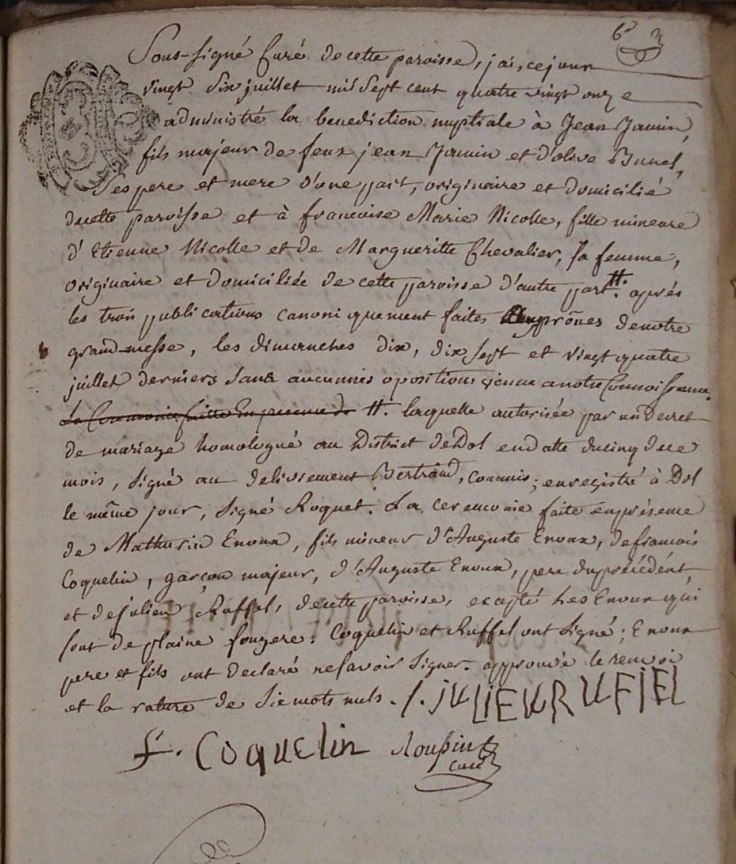 Sous-signé Curé de cette paroisse, j'ai, ce jour
vingt six juillet mil sept cent quatre vingt onze
administré la benediction nuptiale à Jean Jamin,
fils majeur de feus jean Jamin et d'olive Brunel,
ses pere et mere d'une part, originaire et domicilié
de cette paroisse et à francoise Marie Nicolle, fille mineure
d'Etienne Nicolle et de Margueritte Chevalier, sa femme,
originaire et domiciliée de cette paroisse d'autre part. #. après
les trois publications canoniquement faites aux prônes de notre
grand-messe, les dimanches dix, dix sept et vingt quatre
juillet derniers sans aucunnes opositions venue a notre Connoissance.
La Ceremonie faitte En presence de #. laquelle autorisée par un Decret
de mariage homologué au District de Dol en datte du cinq de ce
mois, signé au delivrement Bertrand, commis; enregistré à Dol
le même jour, signé Roquet. La ceremonie faite en présence
de Mathurin Enoux, fils mineur d'Auguste Enoux, de francois
Coquelin, garçon majeur, d'Auguste Enoux, pere du précédent
et de julien Ruffel, de cette paroisse, excepté Les Enoux qui
sont de plaine fougere: Coquelin et Ruffel ont signé; Enoux
pere et fils ont declaré ne savoir signer. approuvé le renvoi
et la rature de six mots nuls. /. JULIEU RUFIEL
f. Coquelin
curé